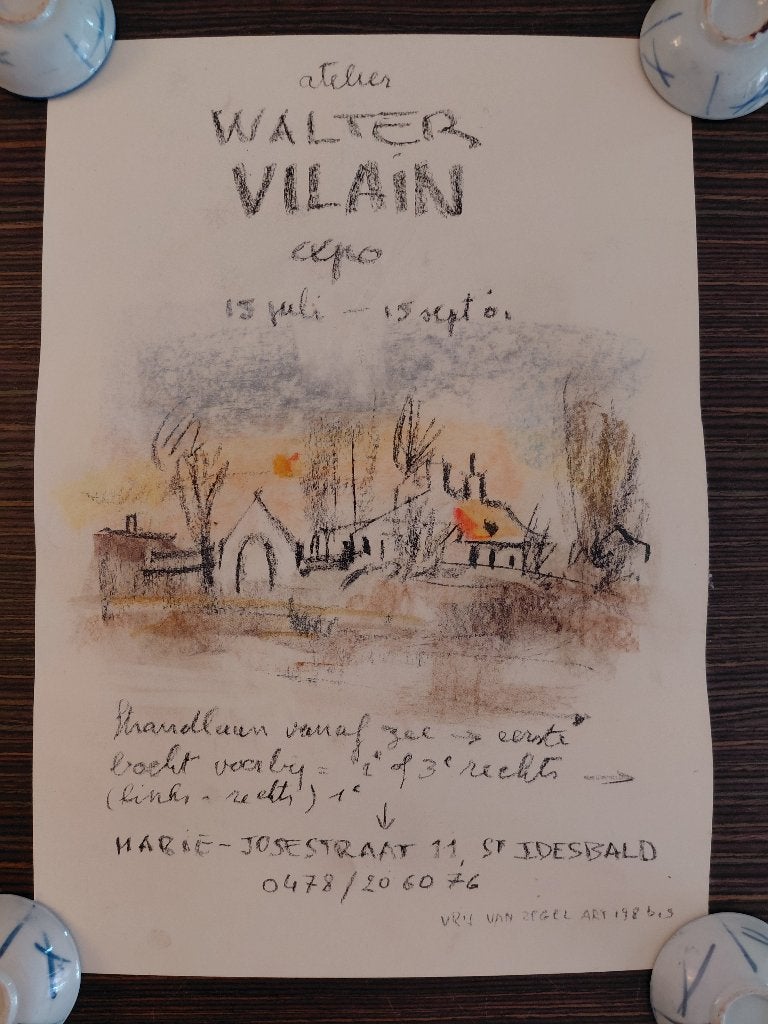 atelier
WALTER
VILAIN
expo
15 juli — 15 sept
Strandlaan vanaf zee → eerste
bocht voorbij = 2e of 3e rechts →
(links - rechts) 1e
↓
MARIE-JOSESTRAAT 11, ST IDESBALD
0478/20 60 76
VRIJ VAN ZEGEL ART 198 bis